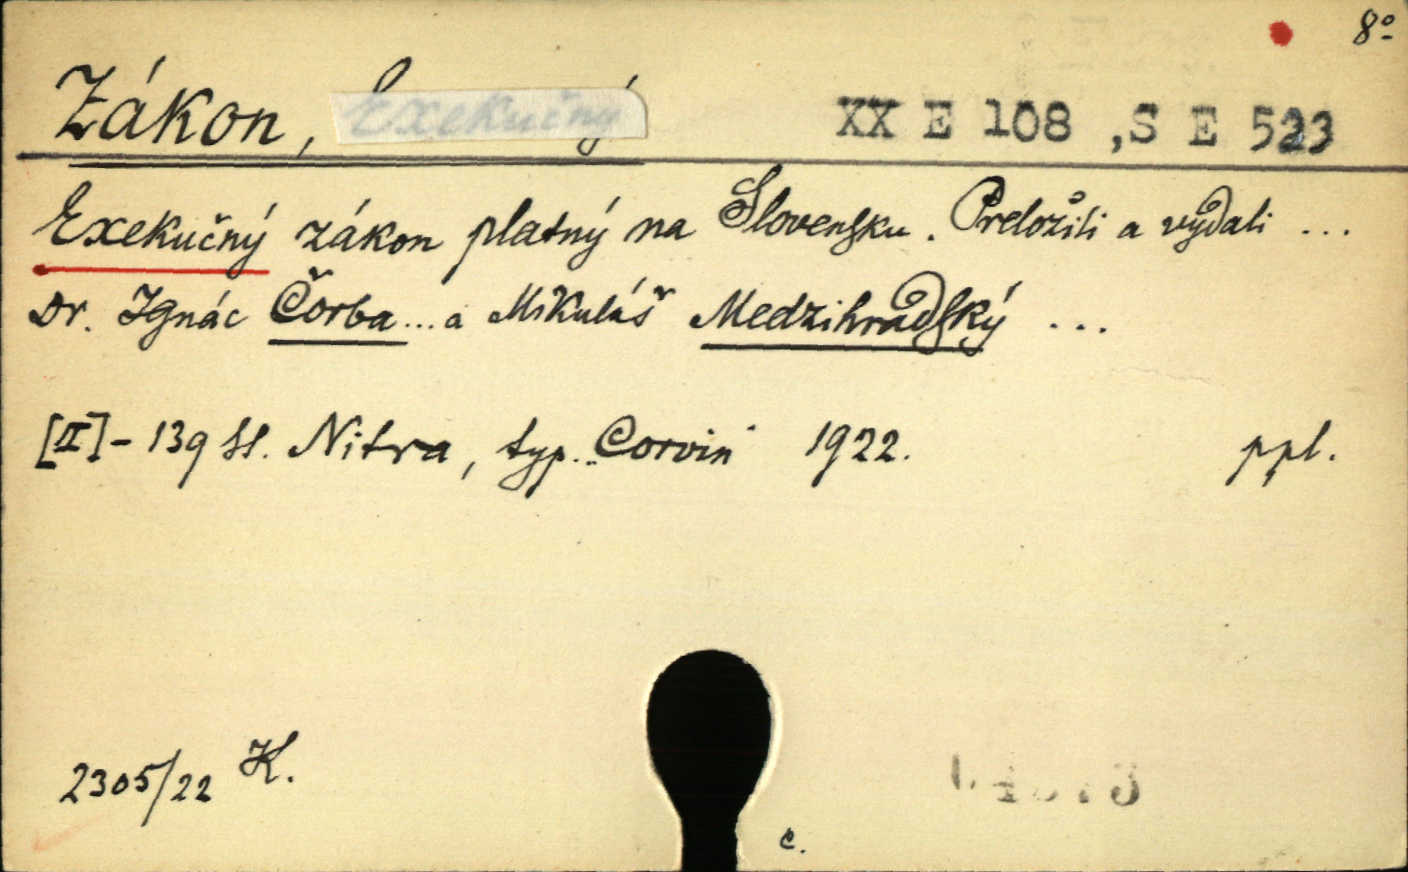 8º
Zákon, Exekučný XX E 108 ,S E 523
Exekučný zákon platný na Slovensku. Preložili a vydali ...
Dr. Ignác Čorba ... a Mikuláš Medzihradský ...
[II] - 139 ss. Nitra, typ. „Corvin" 1922. ppl.
2305/22 K.
c.